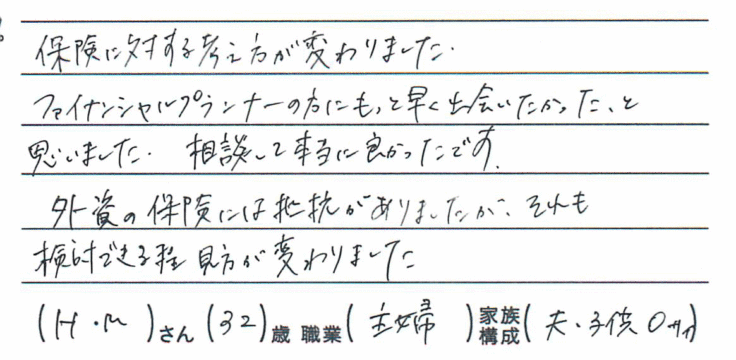 保険に対する考え方が変わりました.
ファイナンシャルプランナーの方にもっと早く出会いたかった、と
思いました. 相談して本当に良かったです.
外資の保険には抵抗がありましたが、それも
検討できる程 見方が変わりました
(H・M)さん (32)歳 職業(主婦)家族構成(夫・子供0サイ)